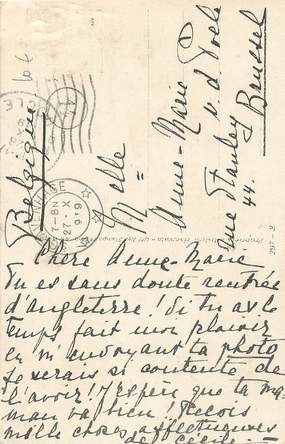 Chère Anne-Marie
Tu es sans doute rentrée
d'angleterre! Si tu as le
temps fait moi plaisir
en m'envoyant ta photo
Je serais si contente de
l'avoir! J'espère que ta ma-
man va bien! Reçois
mille choses affectueuses
de Cécile
Melle
Anne-Marie
v. d. Poele
rue Stanley
44
Brussel
Belgique
7-8N
27·X